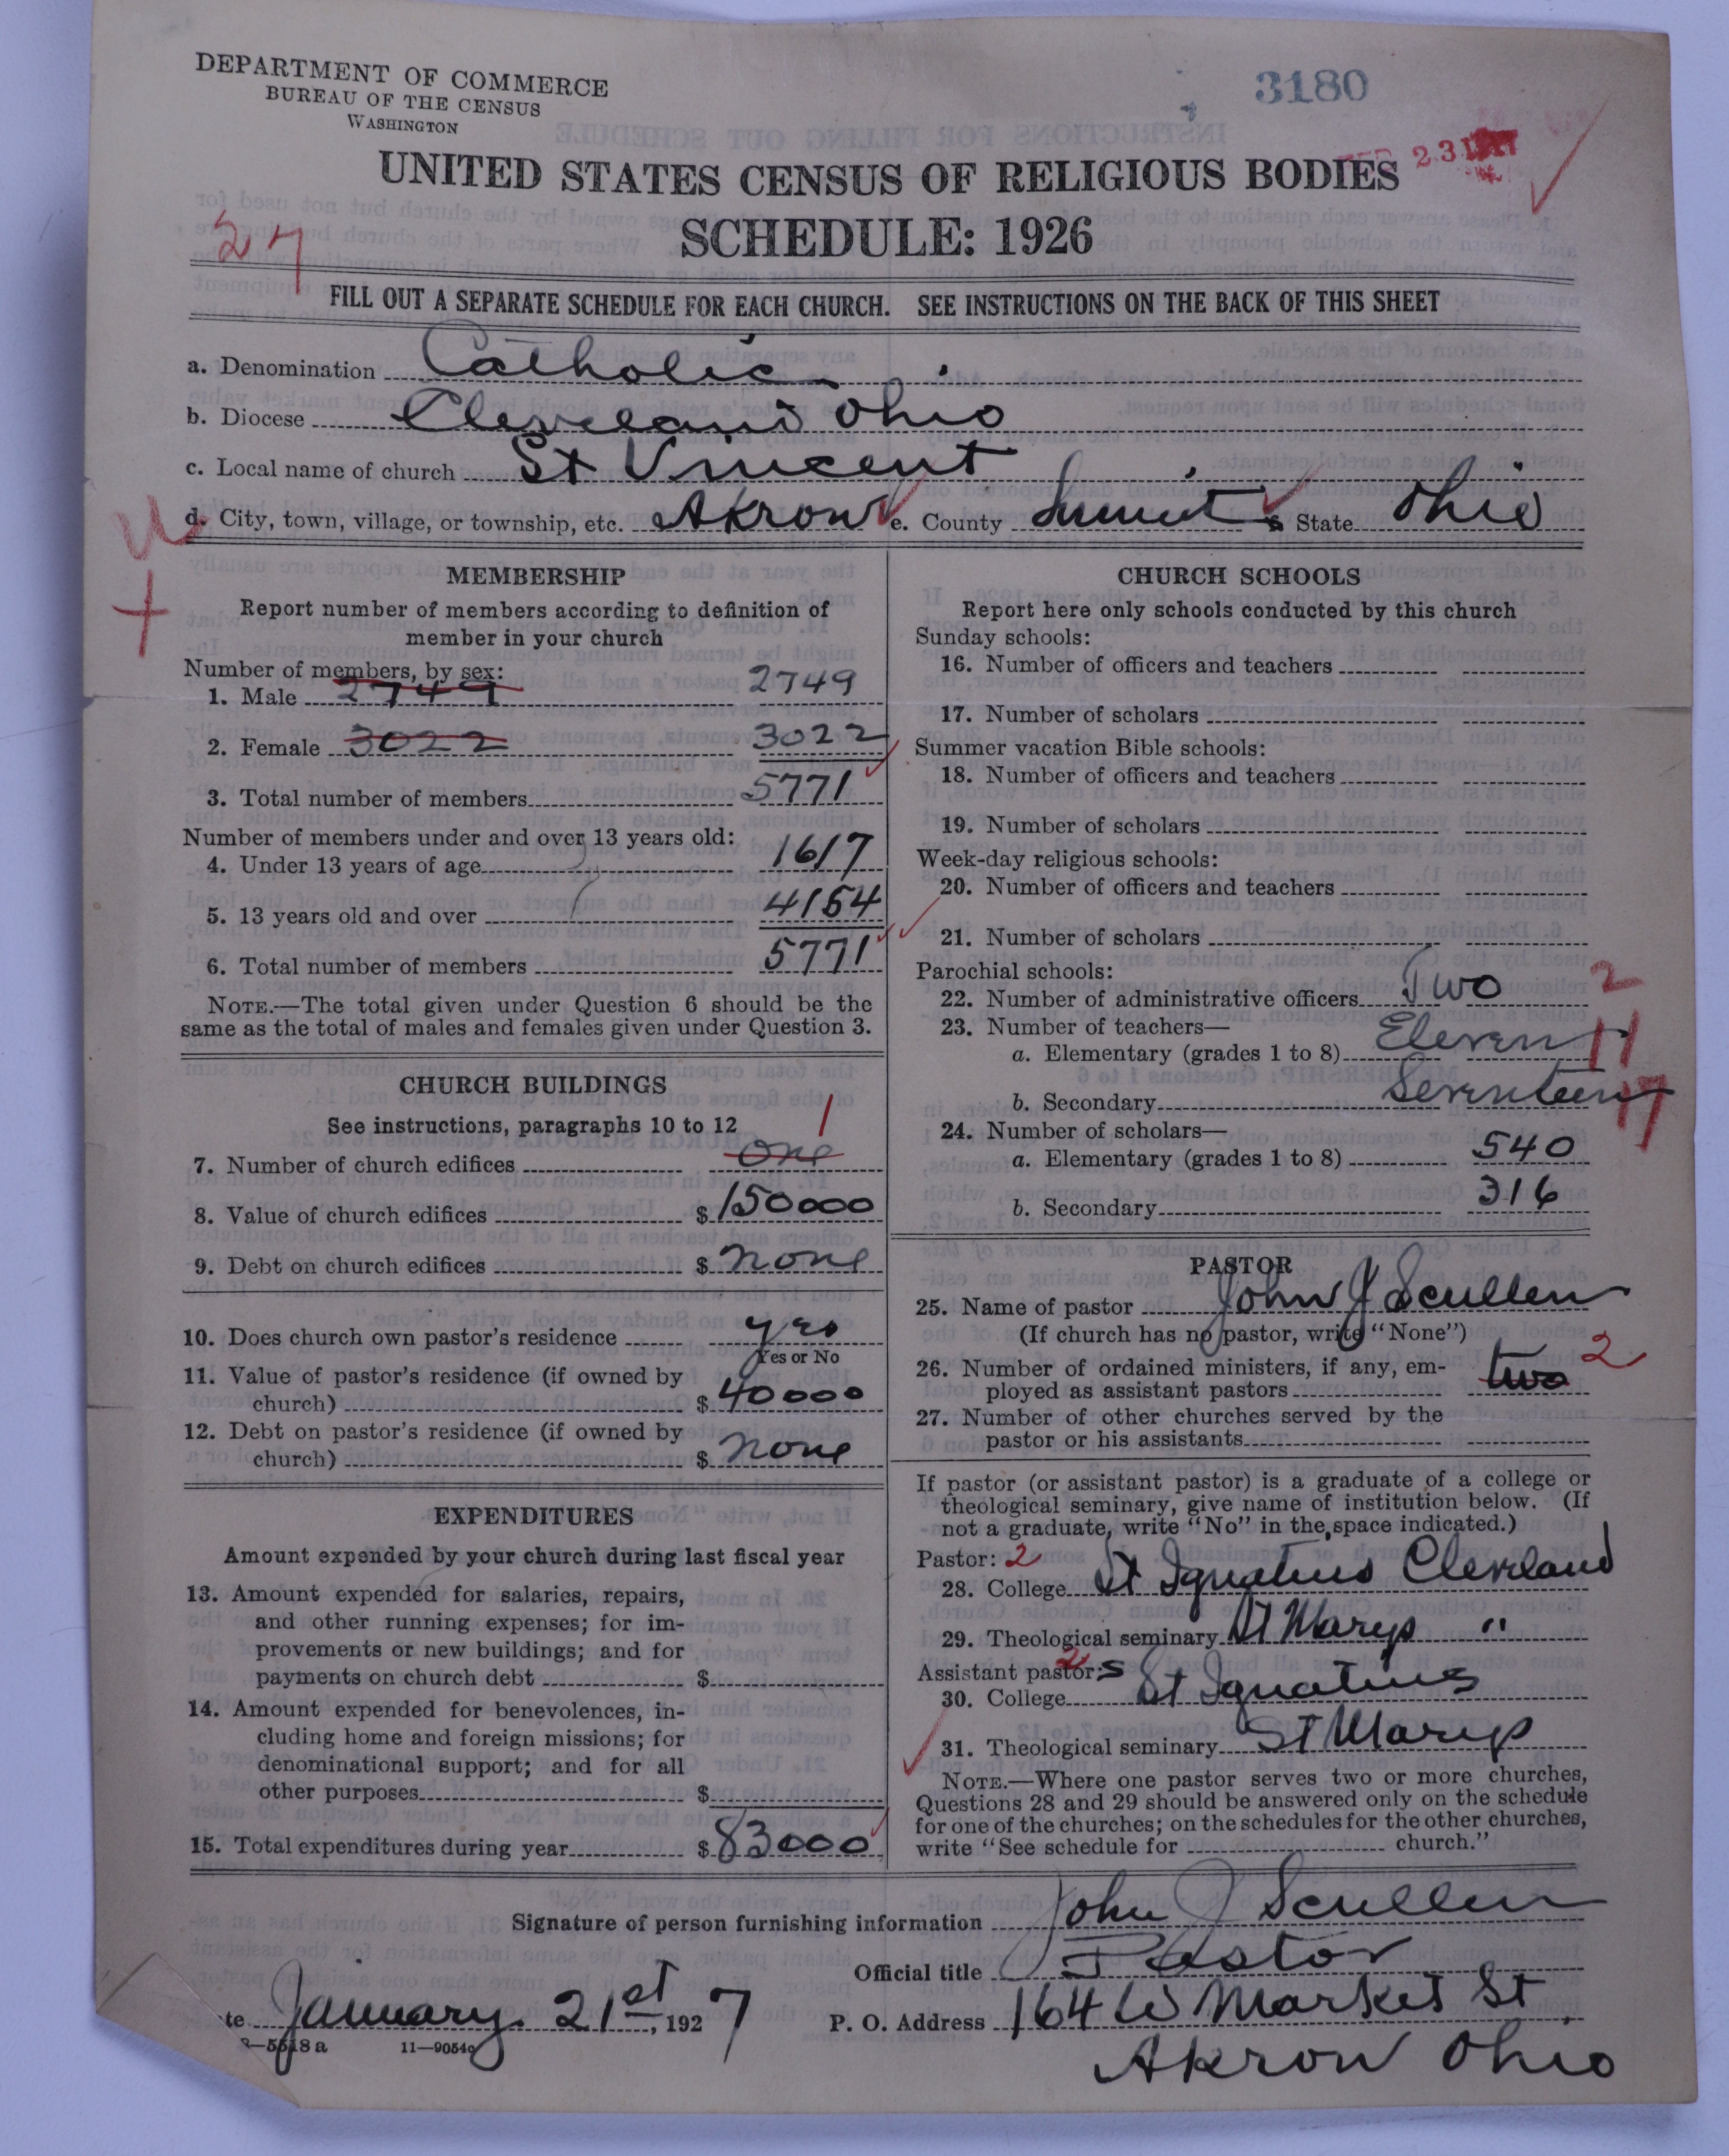 DEPARTMENT OF COMMERCE
BUREAU OF THE CENSUS
WASHINGTON
3180
23 1927
UNITED STATES CENSUS OF RELIGIOUS BODIES
SCHEDULE: 1926
27
FILL OUT A SEPARATE SCHEDULE FOR EACH CHURCH. SEE INSTRUCTIONS ON THE BACK OF THIS SHEET
a. Denomination Catholic
b. Diocese Cleveland Ohio
c. Local name of church St Vincent
d. City, town, village, or township, etc. Akron e. County Summit & State Ohio
MEMBERSHIP
Report number of members according to definition of
member in your church
Number of members, by sex:
1. Male 2749 2749
2. Female 3022 3022
3. Total number of members 5771
Number of members under and over 13 years old:
4. Under 13 years of age 1617
5. 13 years old and over 4154
6. Total number of members 5771
NOTE.—The total given under Question 6 should be the
same as the total of males and females given under Question 3.
CHURCH BUILDINGS
See instructions, paragraphs 10 to 12
7. Number of church edifices one 1
8. Value of church edifices $ 150000
9. Debt on church edifices $ none
10. Does church own pastor's residence yes
Yes or No
11. Value of pastor's residence (if owned by
church) $ 40000
12. Debt on pastor's residence (if owned by
church) $ none
EXPENDITURES
Amount expended by your church during last fiscal year
13. Amount expended for salaries, repairs,
and other running expenses; for im-
provements or new buildings; and for
payments on church debt $
14. Amount expended for benevolences, in-
cluding home and foreign missions; for
denominational support; and for all
other purposes $
15. Total expenditures during year $ 83000
CHURCH SCHOOLS
Report here only schools conducted by this church
Sunday schools:
16. Number of officers and teachers
17. Number of scholars
Summer vacation Bible schools:
18. Number of officers and teachers
19. Number of scholars
Week-day religious schools:
20. Number of officers and teachers
21. Number of scholars
Parochial schools:
22. Number of administrative officers Two 2
23. Number of teachers—
a. Elementary (grades 1 to 8) Eleven 11
b. Secondary Seventeen 17
24. Number of scholars—
a. Elementary (grades 1 to 8) 540
b. Secondary 316
PASTOR
25. Name of pastor John J Scullen
(If church has no pastor, write "None")
26. Number of ordained ministers, if any, em-
ployed as assistant pastors two 2
27. Number of other churches served by the
pastor or his assistants
If pastor (or assistant pastor) is a graduate of a college or
theological seminary, give name of institution below. (If
not a graduate, write "No" in the space indicated.)
Pastor: 2
28. College St Ignatius Cleveland
29. Theological seminary St Marys "
Assistant pastor:s 2
30. College St Ignatius
31. Theological seminary St Marys
NOTE.—Where one pastor serves two or more churches,
Questions 28 and 29 should be answered only on the schedule
for one of the churches; on the schedules for the other churches,
write "See schedule for church."
Signature of person furnishing information John J Scullen
Official title Pastor
te January 21st, 1927 P. O. Address 164 W Market St
Akron Ohio
8—5518 a 11—9054a